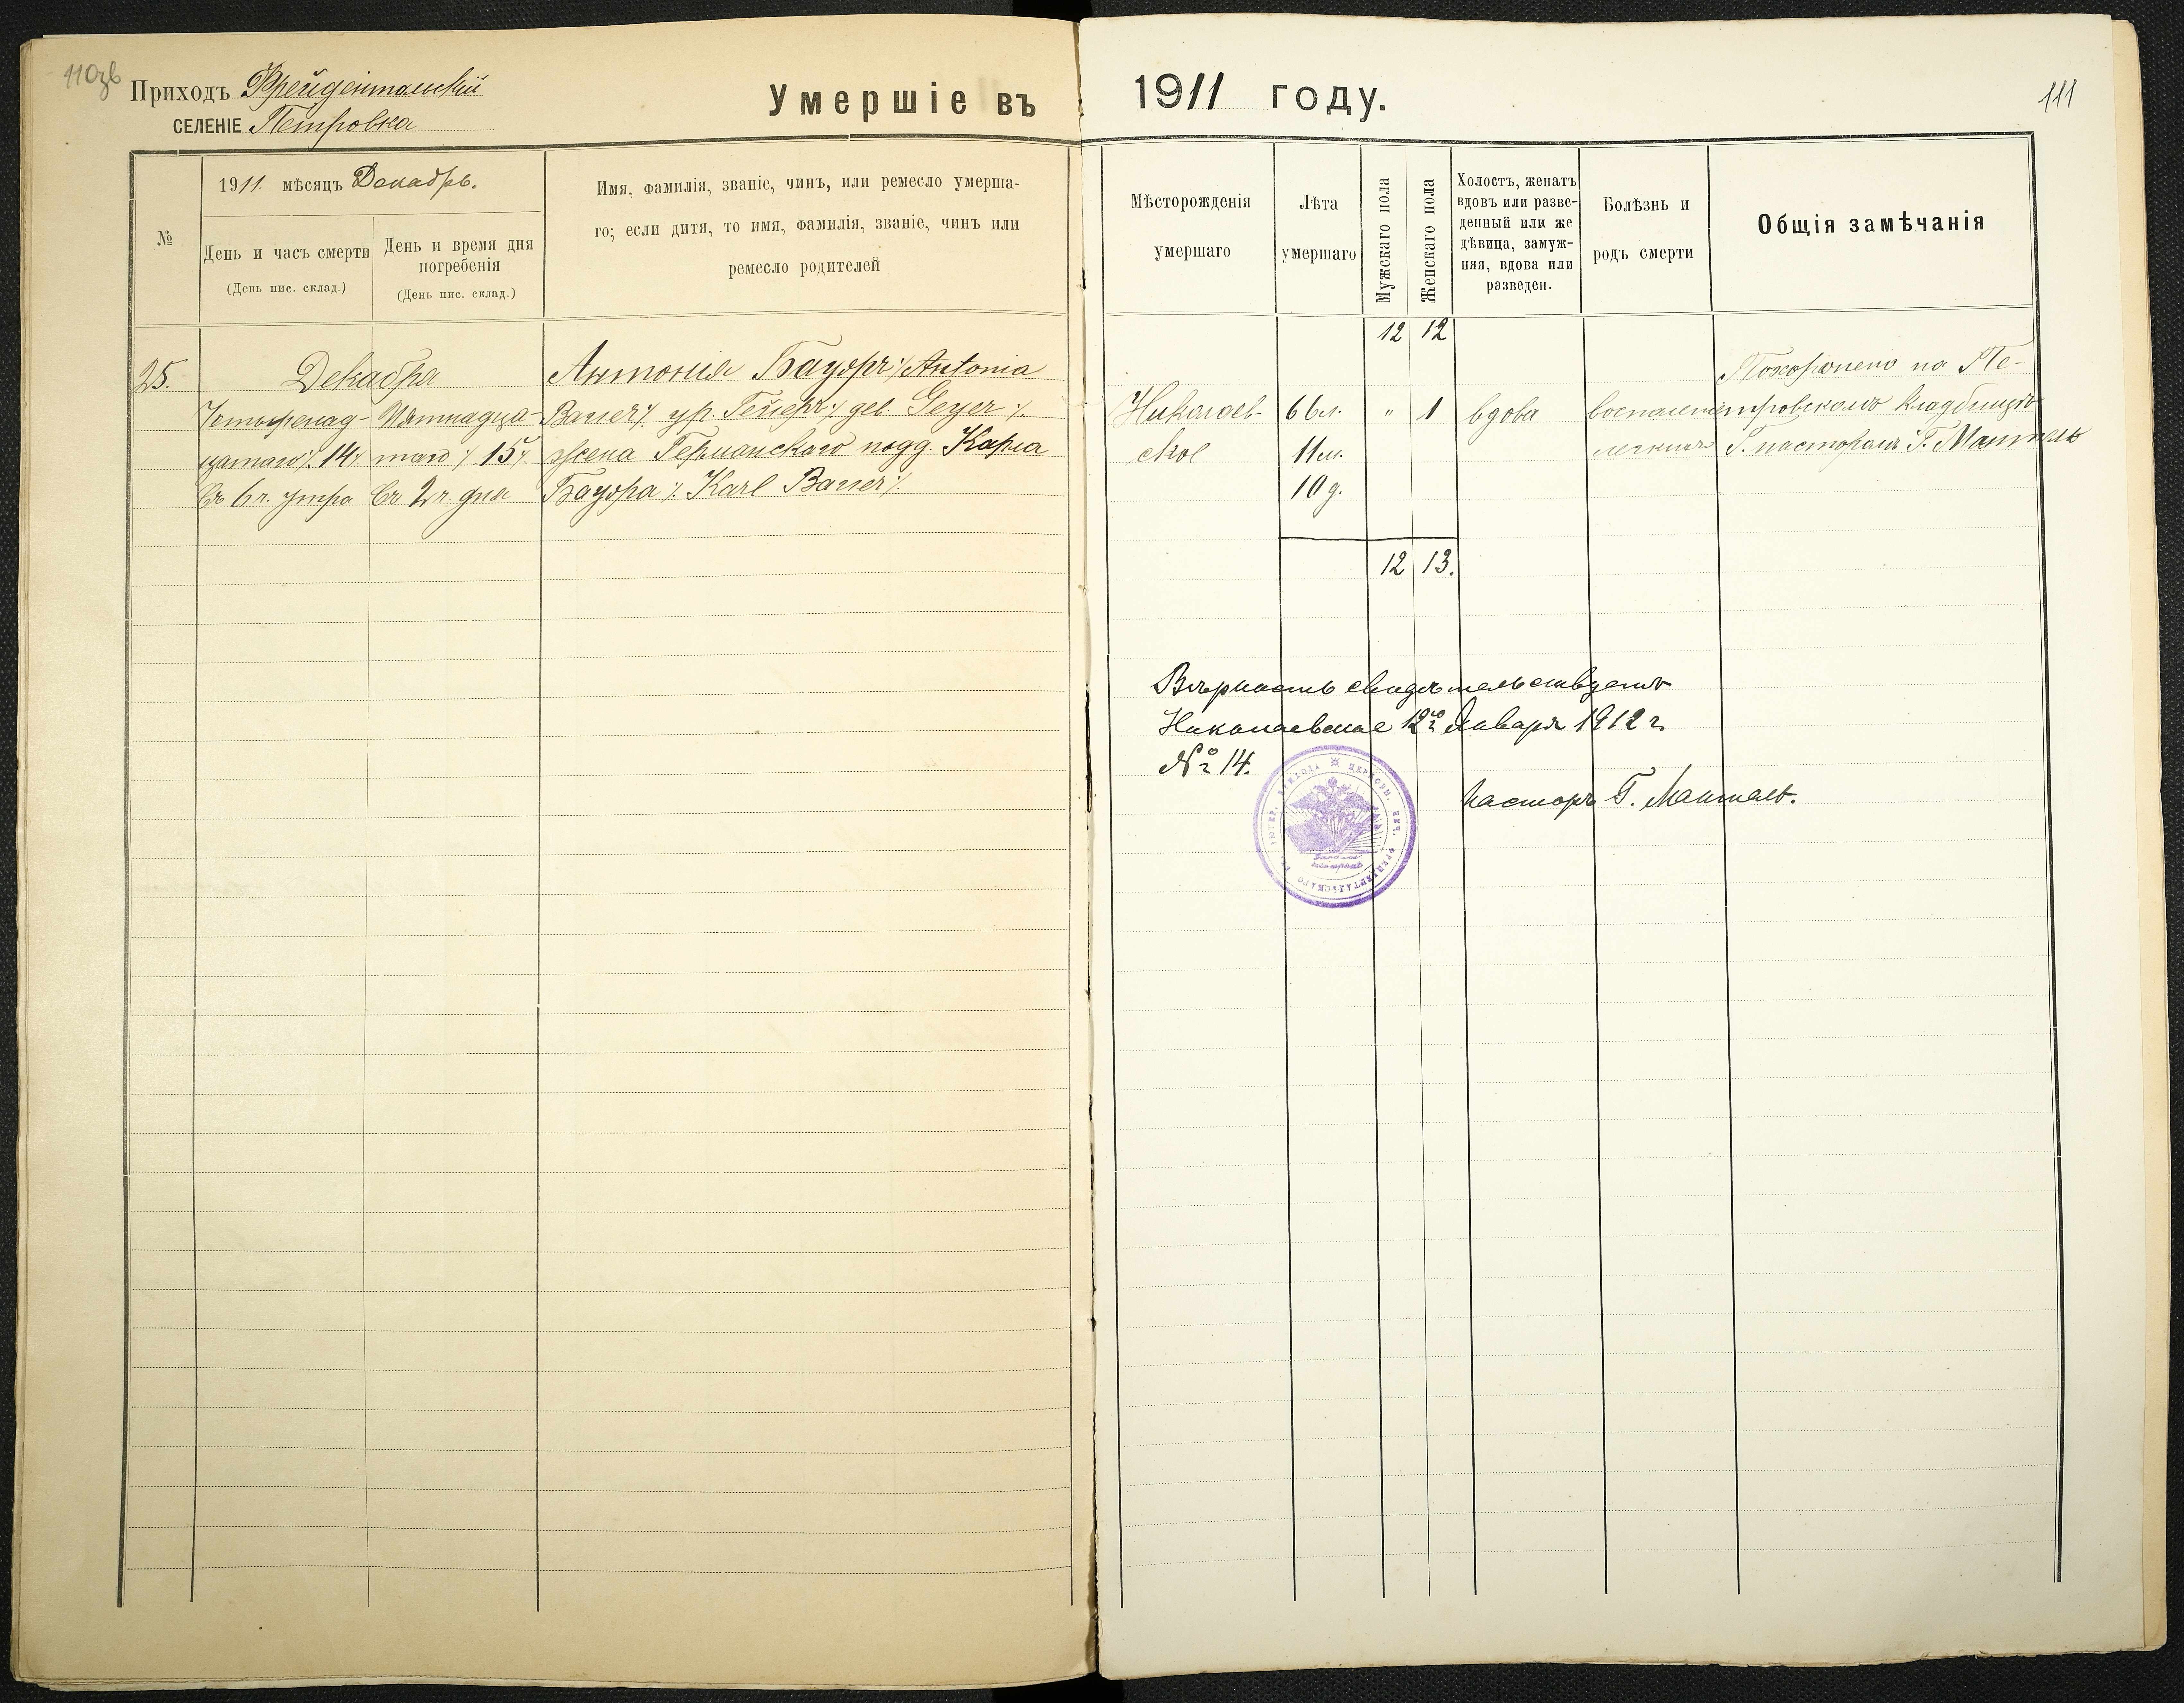 110зв
Приходъ Фрейдентальскій
СЕЛЕНІЕ Петровка
Умершіе въ 1911 году.
111
№
1911 мѣсяцъ Декабрь.
День и часъ смерти
(День пис. склад.)
День и время дня
погребенія
(День пис. склад.)
Имя, фамилія, званіе, чинъ, или ремесло умерша-
го; если дитя, то имя, фамилія, званіе, чинъ или
ремесло родителей
Мѣсторожденія
умершаго
Лѣта
умершаго
Мужскаго пола
Женскаго пола
Холостъ, женатъ
вдовъ или разве-
денный или же
дѣвица, замуж-
няя, вдова или
разведен.
Болѣзнь и
родъ смерти
Общія замѣчанія
12 12
25.
Декабря
Четырнад-
цатаго ⁒ 14 ⁒
въ 6 ч. утра
Пятнадца-
таго ⁒ 15 ⁒
въ 2 ч. дня
Антонія Бауэръ ⁒ Antonia
Bauer ⁒ ур. Гейеръ ⁒ geb. Geyer ⁒
жена Германскаго подд. Карла
Бауэра ⁒ Karl Bauer ⁒
Николаев-
ское
66 л.
11 м.
10 д.
" 1
вдова
воспаленіе
легкихъ
Похоронена на Пе-
тровскомъ кладбищѣ
Г. пасторомъ Г. Мантель
12 13.
Вѣрность свидѣтельствуетъ
Николаевское 12го Января 1912 г.
№ 14.
Пасторъ Г. Мантель.